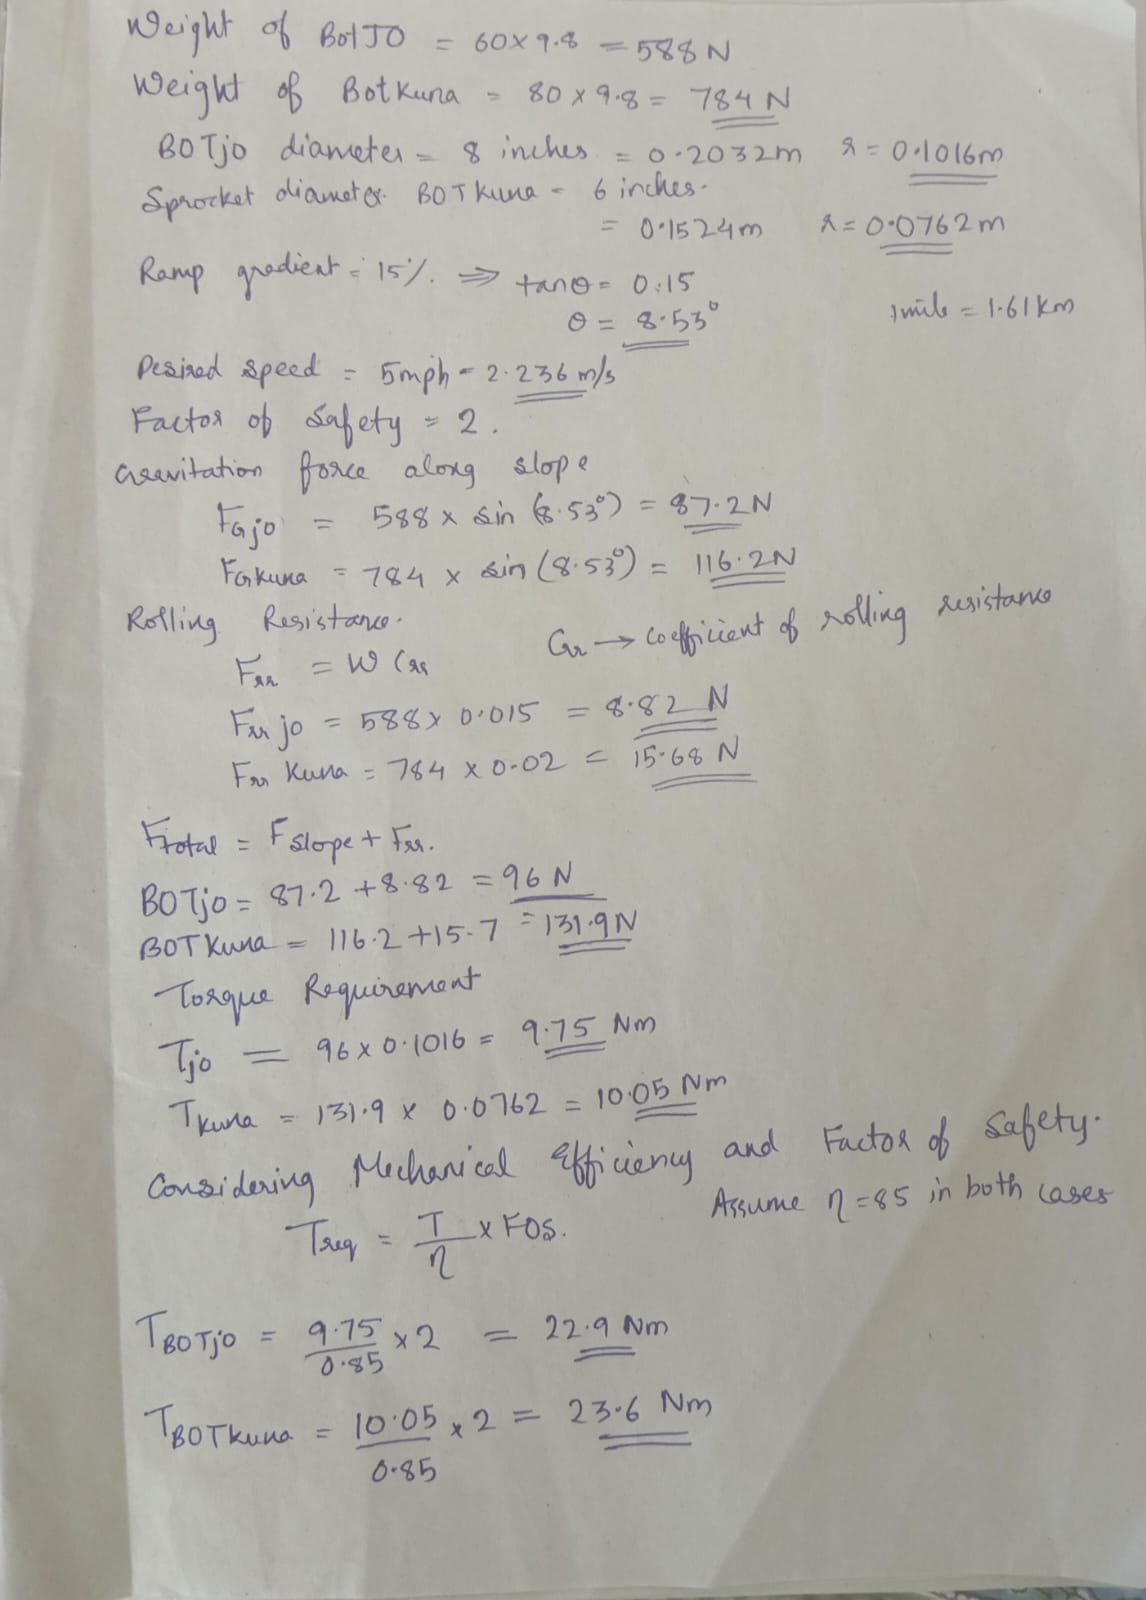 Weight of BotJO = 60 x 9.8 = 588 N
Weight of Botkuna = 80 x 9.8 = 784 N
BOTjo diameter = 8 inches = 0.2032m r = 0.1016m
Sprocket diameter BOTkuna = 6 inches.
= 0.1524m r = 0.0762m
Ramp gradient = 15%. ⇒ tanθ = 0.15
θ = 8.53° 1 mile = 1.61 km
Desired speed = 5mph = 2.236 m/s
Factor of Safety = 2.
Gravitation force along slope
FGjo = 588 x sin (8.53°) = 87.2N
FGkuna = 784 x sin (8.53°) = 116.2N
Rolling Resistance. Crr → coefficient of rolling resistance
Frr = W Crr
Frr jo = 588 x 0.015 = 8.82 N
Frr Kuna = 784 x 0.02 = 15.68 N
Ftotal = Fslope + Frr.
BOTjo = 87.2 + 8.82 = 96 N
BOTkuna = 116.2 + 15.7 = 131.9N
Torque Requirement
Tjo = 96 x 0.1016 = 9.75 Nm
Tkuna = 131.9 x 0.0762 = 10.05 Nm
Considering Mechanical Efficiency and Factor of Safety.
Treq = T/η x FOS. Assume η = 85 in both cases
TBOTjo = 9.75/0.85 x 2 = 22.9 Nm
TBOTkuna = 10.05/0.85 x 2 = 23.6 Nm